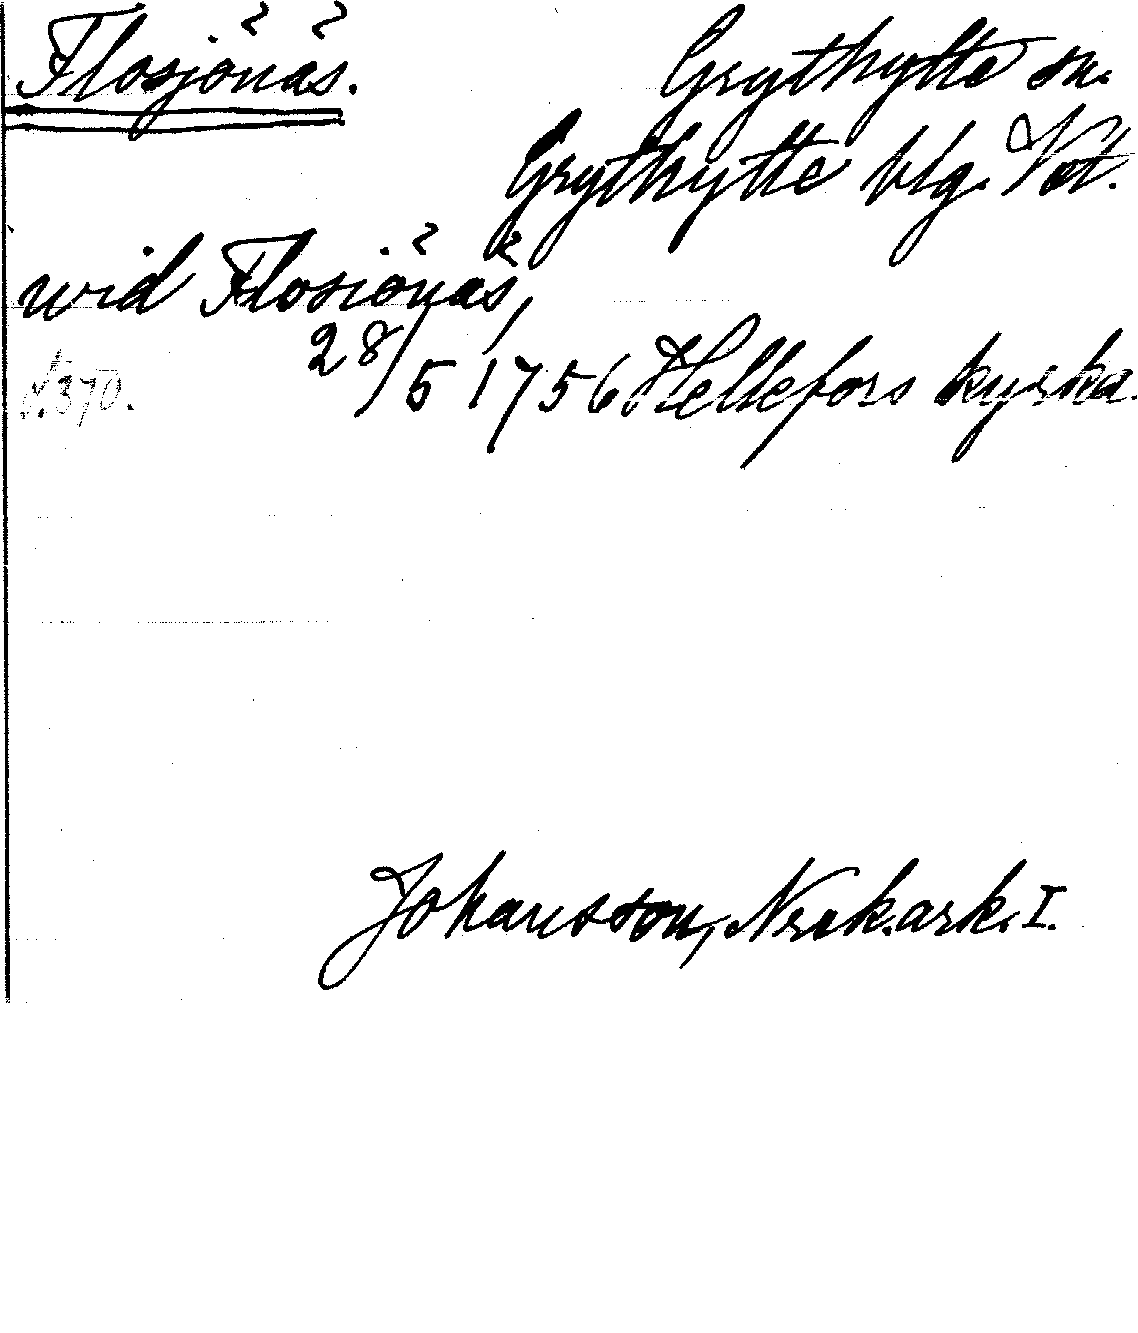 Flosjönäs. Grythytte sn.
Grythytte blg. Vst.
wid Flosiönäs,
s. 370. 28/5 1756 Hellefors kyrka.
Johansson, Nrk.ark. I.